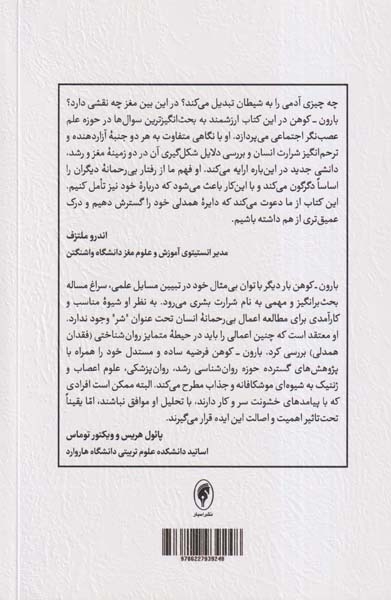 چه چیزی آدمی را به شیطان تبدیل می‌کند؟ در این بین مغز چه نقشی دارد؟
بارون ـ کوهن در این کتاب ارزشمند به بحث‌انگیزترین سوال‌ها در حوزه علم
عصب‌نگر اجتماعی می‌پردازد. او با نگاهی متفاوت به هر دو جنبهٔ آزاردهنده و
ترحم‌انگیز شرارت انسان و بررسی دلایل شکل‌گیری آن در دو زمینهٔ مغز و رشد،
دانشی جدید در این‌باره ارایه می‌کند. او فهم ما از رفتار بی‌رحمانهٔ دیگران را
اساساً دگرگون می‌کند و با این‌کار باعث می‌شود که دربارهٔ خود نیز تأمل کنیم.
این کتاب از ما دعوت می‌کند که دایرهٔ همدلی خود را گسترش دهیم و درک
عمیق‌تری از هم داشته باشیم.
اندرو ملتزف
مدیر انستیتوی آموزش و علوم مغز دانشگاه واشنگتن
بارون ـ کوهن بار دیگر با توان بی‌مثال خود در تبیین مسایل علمی، سراغ مساله
بحث‌برانگیز و مهمی به نام شرارت بشری می‌رود. به نظر او شیوهٔ مناسب و
کارآمدی برای مطالعه اعمال بی‌رحمانهٔ انسان تحت عنوان "شر" وجود ندارد.
او معتقد است که چنین اعمالی را باید در حیطهٔ متمایز روان‌شناختی (فقدان
همدلی) بررسی کرد. بارون ـ کوهن فرضیه ساده و مستدل خود را همراه با
پژوهش‌های گسترده حوزه روان‌شناسی رشد، روان‌پزشکی، علوم اعصاب و
ژنتیک به شیوه‌ای موشکافانه و جذاب مطرح می‌کند. البته ممکن است افرادی
که با پیامدهای خشونت سر و کار دارند، با تحلیل او موافق نباشند، امّا یقیناً
تحت‌تاثیر اهمیت و اصالت این ایده قرار می‌گیرند.
پائول هریس و ویکتور توماس
اساتید دانشکده علوم تربیتی دانشگاه هاروارد
نشر اسبار
9786227839240